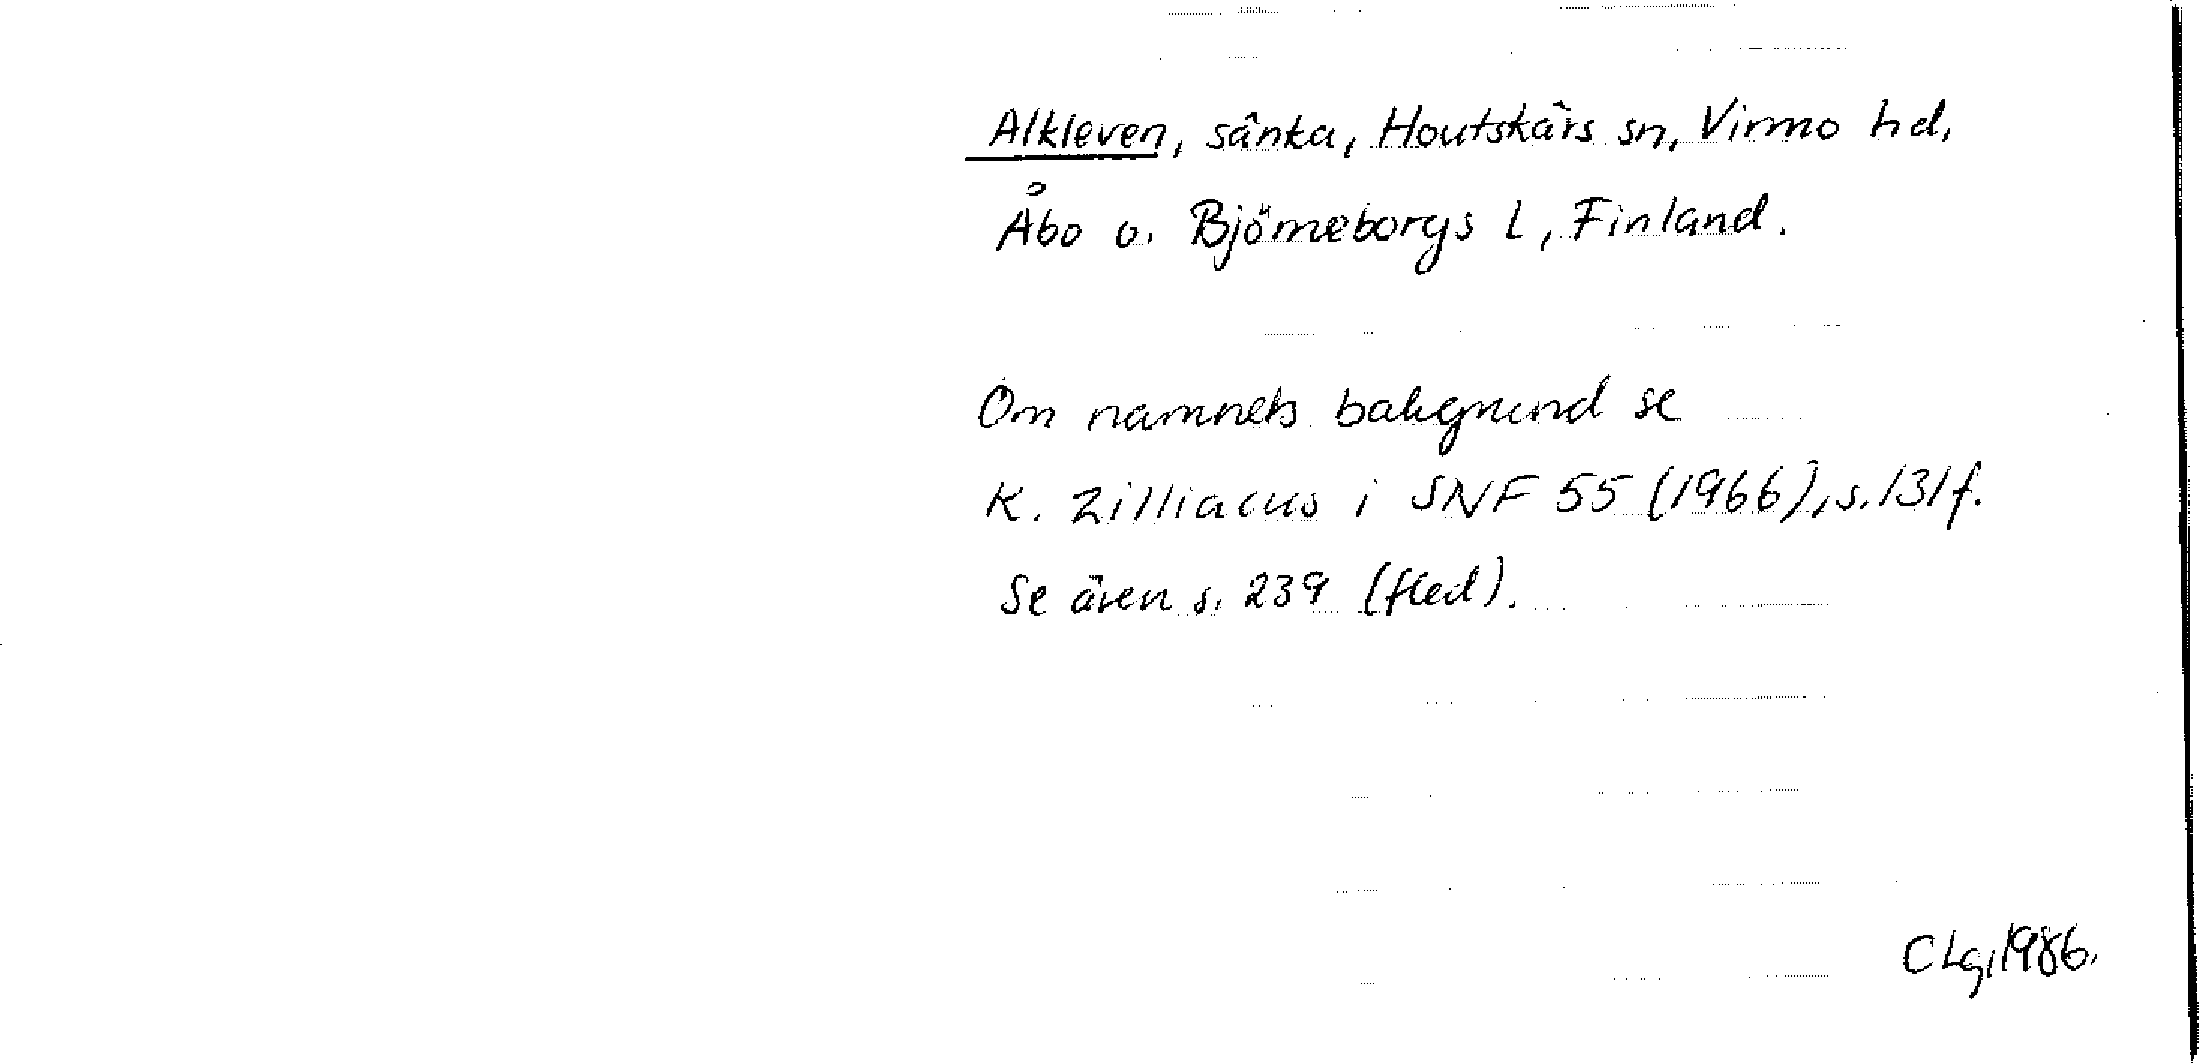 Alkleven, sänka, Houtskärs sn, Virmo hd,
Åbo o. Björneborgs l, Finland.
Om namnets bakgrund se
K. Zilliacus i SNF 55 (1966), s. 131 f.
Se även s. 239 (fled).
CLg, 1986.